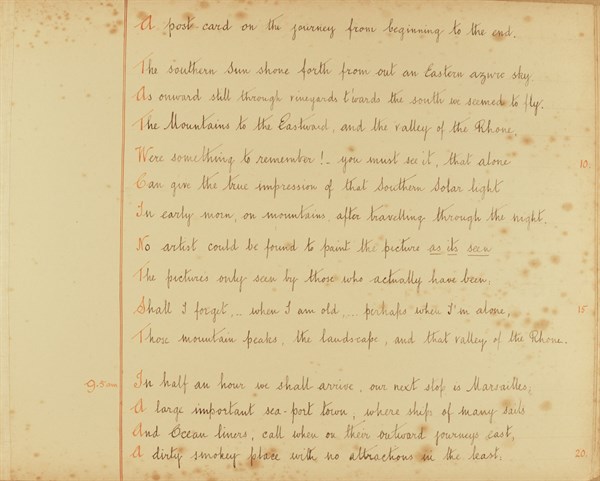 A post card on the journey from beginning to the end.
The Southern Sun shone forth from out an Eastern azure sky.
As onward still through vineyards t'wards the south we seemed to fly.
The Mountains to the Eastward, and the valley of the Rhone,
Were something to remember!- you must see it, that alone 10.
Can give the true impression of that Southern Solar light
In early morn, on mountains, after travelling through the night.
No artist could be found to paint the picture as its seen
The pictures only seen by those who actually have been.
Shall I forget,.. when I am old,... perhaps when I'm alone, 15
Those mountain peaks, the landscape, and that valley of the Rhone.
9.5 am In half an hour we shall arrive, our next stop is Marsailles,
A large important sea-port town, where ships of many sails
And Ocean liners, call when on their outward journeys east,
A dirty smokey place with no attractions in the least. 20.